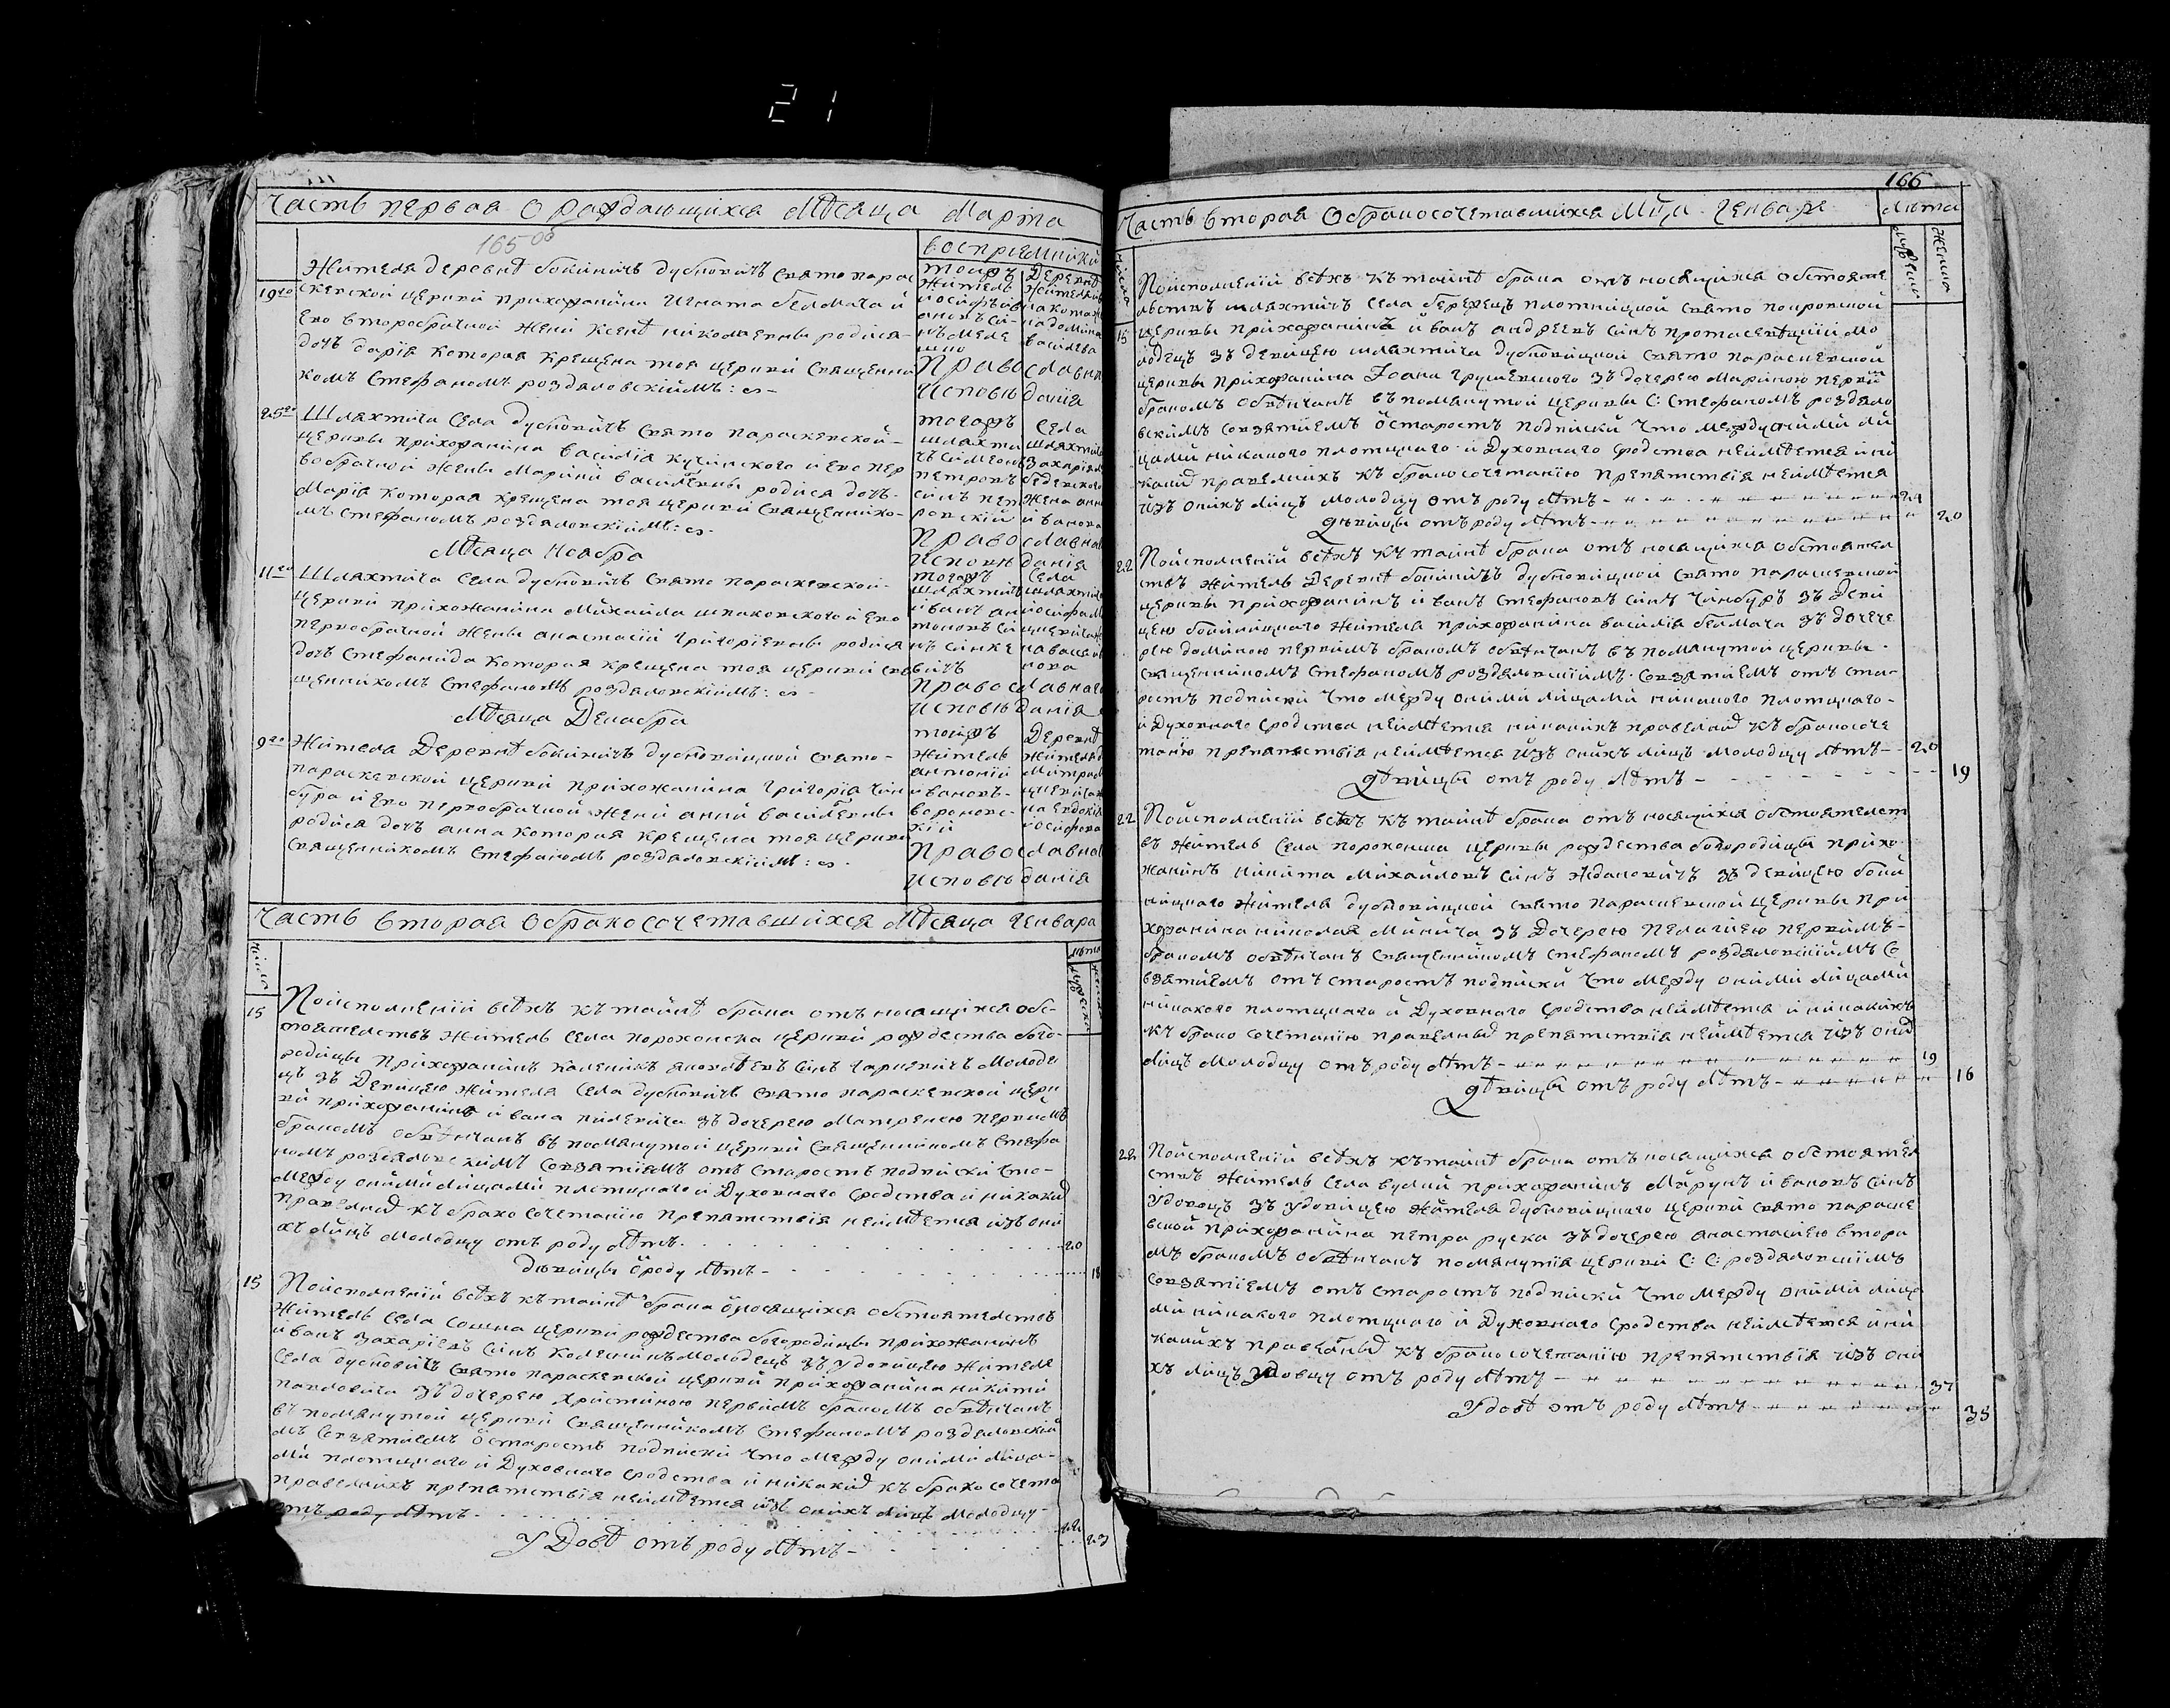 21
Часть первая О раждающихся Мѣсяца Марта
165 об
воспріемники
19го
Жителя деревнѣ бокиничь дубновичъ свято парас
кевской церкви прихожанина Игната белмача и
Его второбрачной жени Ксенѣ николаевны родися
дочь дарія которая крещена тоя церкви священни
комъ Стефаномъ роздяловскіимъ:
тоижъ Деревнѣ
Житель
Право славна
Исповѣ данія
25го Шляхтича села дубновичъ свято параскевской
церквы прихожанина василія кучинского и Его пер
вобрачной жены Марыи василевны родися дочь
Марія которая крещена тоя церкви священнико
мъ стефаномъ роздяловскіимъ:
тогожъ села
петровъ
синъ пет жена анна
ровскій иванова
Право славна
Исповѣ данія
Мѣсяца Ноября
11го Шляхтича села дубновичъ свято параскевской
церкви прихожанина Михаила шпаковского и Его
первобрачной жены анастасіи григоріевны родися
дочь Стефанида которая крещена тоя церкви свя
щенникомъ Стефаномъ роздяловскіимъ:
тогожъ села
Право славнаго
Исповѣ данія
Мѣсяца Декабря
9го Жителя Деревнѣ бокиничь дубновицкой свято
параскевской церкви прихожанина григорія чин
бура и Его первобрачной жени анни василевны
родися дочь анна которая крещена тоя церкви
священникомъ стефаномъ роздяловскіимъ:
тоижъ Деревнѣ
житель
антоній
ивановъ
воронов
кій
Право славна
Исповѣ данія
Часть вторая О бракосочетавшихся Мѣсяца генвара
Числа
лѣта
15 Поисполненіи всѣхъ къ таинѣ брака отъ носящихся обс
тоятелствъ житель села порохонска церкви рождества бого
родицы прихожанинъ каленикъ синъ молоде
цъ зъ Девицею жителя села дубновичъ свято параскевской церк
ви прихожанина ивана пилевича зъ дочерею Матреною первимъ
бракомъ обвѣнчанъ въ помянутой церкви священникомъ Стефа
номъ роздяловскимъ совзятіемъ отъ старостъ подписки что
между оними лицами плотцкаго и Духовнаго сродства и никаких
правелних къ брако сочетанію препятствія неимѣется изъ они
хъ лицъ молодцу отъ роду лѣтъ 20
Дѣвицы ѿ роду лѣтъ 18
15 Поисполненіи всѣхъ къ таинѣ брака ѿносящихся обстоятелствъ
Житель села сошна церкви рождества богородицы прихожанинъ
иванъ захаріевъ синъ молодецъ зъ удовицею жителя
села дубновичъ свято параскевской церкви прихожанина никити
павловича зъ дочерею христиною первимъ бракомъ обвѣнчанъ
въ помянутой церкви священникомъ Стефаномъ роздяловскій
мъ совзятіемъ ѿстаростъ подписки что между оними лица
ми плотцкаго и Духовнаго сродства и никаких къ брако сочета
правелнихъ препятствія неимѣется изъ онихъ лицъ молодцу
отъ роду лѣтъ 22
Удовѣ отъ роду лѣтъ 23
166
Часть вторая О бракосочетавшихся Мца генваря
лѣта
Мужеска
Женска
Числа
15
Поисполненіи всѣхъ къ таинѣ брака отъ носящихся обстояте
лствъ шляхтичъ села бережецъ плотницкой свято покровской
церквы прихожанинъ иванъ андреевъ синъ протасевицкій мо
лодецъ зъ девицею шляхтича дубновицкой свято параскевской
церквы прихожанина Іоана грушевского зъ дочерею Мариною первим
бракомъ обвѣнчанъ въ помянутой церквы С: Стефаномъ роздяло
вскимъ совзятіемъ ѿстаростъ подписки что между оними ли
цами никакого плотцкаго и Духовнаго сродства неимѣется и ни
каких правелнихъ къ бракосочетанію препятствія неимѣется
изъ онихъ лицъ молодцу отъ роду лѣтъ 24
дѣвицы отъ роду лѣтъ 20
22 Поисполненіи всѣхъ къ таинѣ брака отъ носящихся обстоятел
ствъ житель Деревнѣ бокиничъ дубновицкой свято параскевской
церквы прихожанинъ иванъ Стефановъ синъ чинбуръ зъ деви
цею бокиницкаго жителя прихожанина василія белмача зъ дочере
рею доминою первимъ бракомъ обвѣнчанъ въ помянутой церквы
священникомъ стефаномъ роздяловскіимъ совзятіемъ отъ ста
ростъ подписки что между оними лицами никакого плотцкаго
и Духовнаго сродства неимѣется никакихъ правелних къ бракосоче
танію препятствія неимѣется изъ онихъ лицъ молодцу лѣтъ 20
дѣвицы отъ роду лѣтъ 19
22 Поисполненіи всѣхъ къ таинѣ брака отъ носящихся обстоятелст
въ житель села порохонска церквы рождества богородицы прихо
жанинъ никита михайловъ синъ ждановичъ зъ девицею боки
ницкаго жителя дубновицкой свято параскевской церквы при
хожанина николая минича зъ дочерею пелагіею первимъ
бракомъ обвѣнчанъ священникомъ стефаномъ роздяловскіимъ со
взятіемъ отъ старостъ подписки что между оними лицами
никакого плотцкаго и Духовнаго сродства неимѣется и никакихъ
къ брако сочетанію правелных препятствія неимѣется изъ оних
лицъ молодцу отъ роду лѣтъ 19
дѣвицы отъ роду лѣтъ 16
22 Поисполненіи всѣхъ къ таинѣ брака отъ носящихся обстоятел
ствъ житель села вулки прихожанинъ ивановъ синъ
удовецъ зъ удовицею жителя дубновицкаго церкви свято параске
вской прихожанина петра руска зъ дочерею анастасіею втори
мъ бракомъ обвѣнчанъ помянутія церкви С: С: роздяловскіимъ
совзятіемъ отъ старостъ подписки что между оними лица
ми никакого плотцкаго и Духовнаго сродства неимѣется и ни
какихъ правелних къ брако сочетанію препятствія изъ они
хъ лицъ удовцу отъ роду лѣтъ 37
Удовѣ отъ роду лѣтъ 35